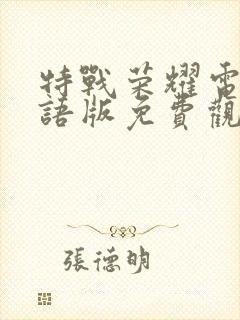 特戰荣耀電
語版免費觀
張德明